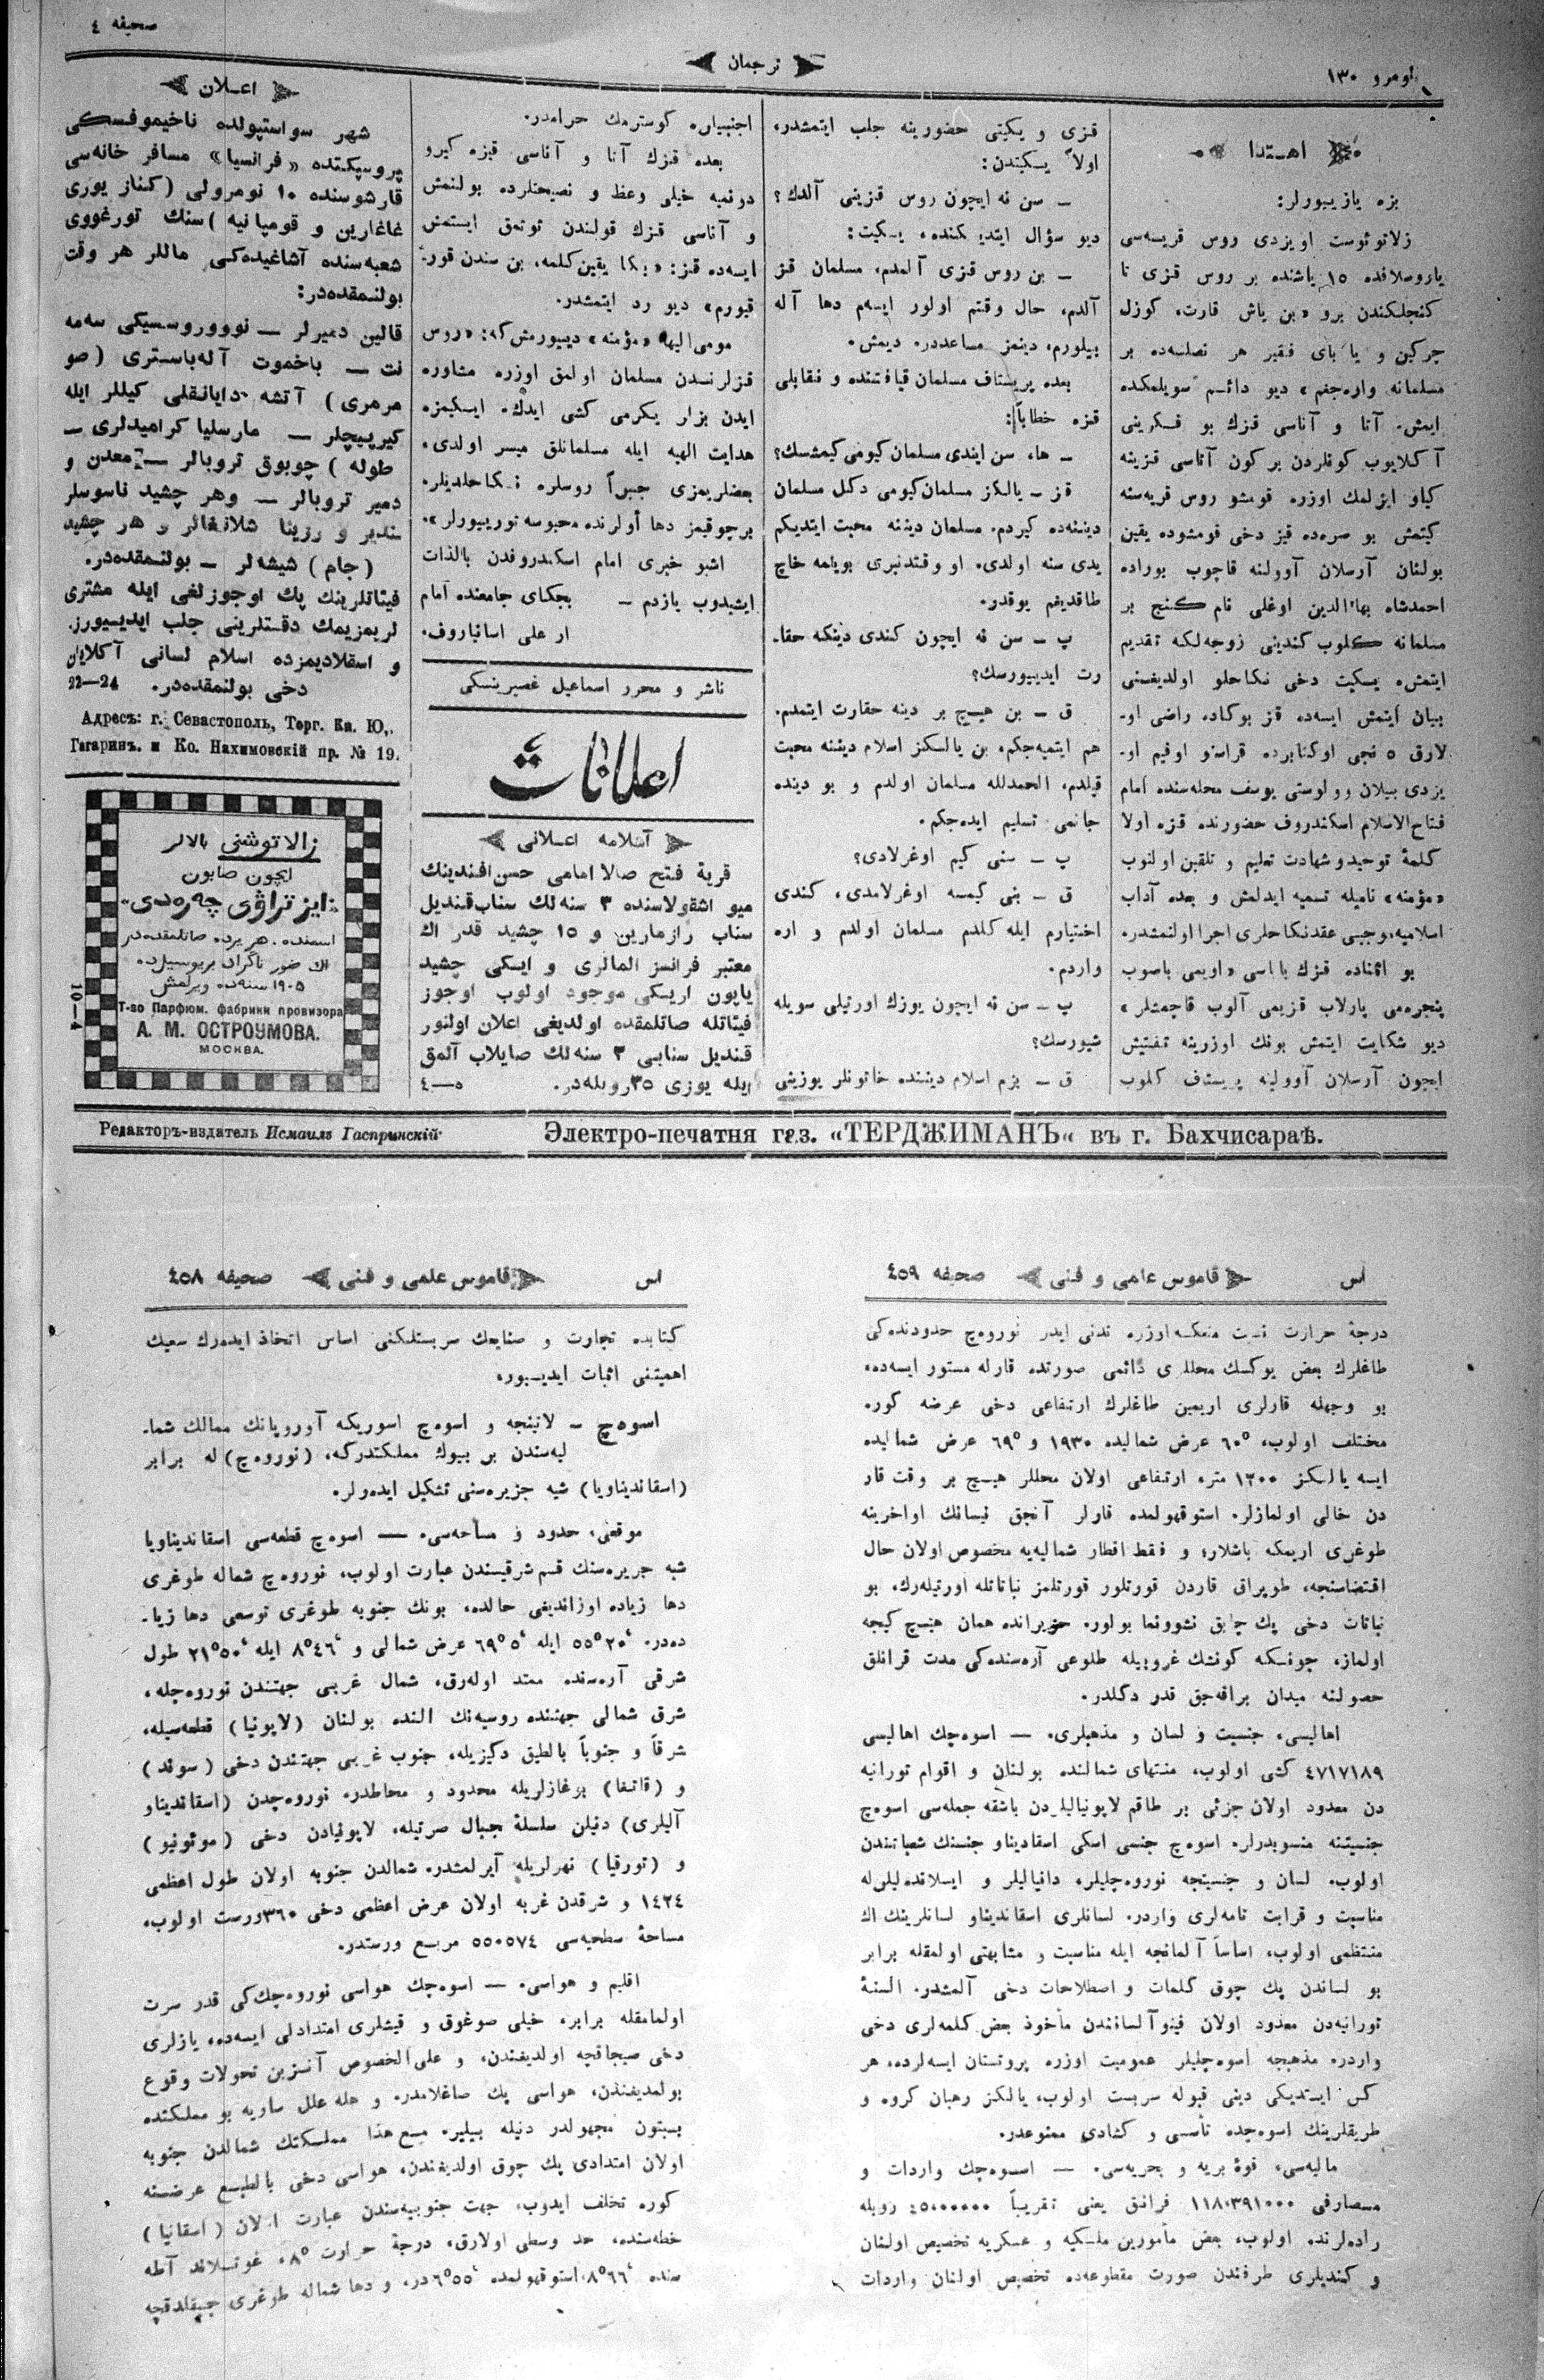 نومرو ١٣٠
ترجمان
صحيفه ٤
اهـتدا
بزه يازييورلر:
زلاتوئوست اويزدى روس قريه‌سى
ياروسلافده ١٥ ياشنده بر روس قزى تا
كنجلكندن برو «بن ياش قارت، كوزل
چركين و يا باى فقير هر نصلسه‌ده بر
مسلمانه واره‌جغم» ديو دائـم سويلمكده
ايمش. آنا و آناسى قزك بو فـكرينى
آكلايوب كونلردن بر كون آناسى قزينه
كياو ايزلمك اوزره قومشو روس قريه‌سنه
كيتمش بو صره‌ده قيز دخى قومشوده يقين
بولنان آرسلان آوولنه قاچوب بوراده
احمدشاه بهاالدين اوغلى نام كـنج بر
مسلمانه كلوب كندينى زوجه‌لكه تقديم
ايتمش، يـكيت دخى نكاحلو اولديغـنى
بيان ايتمش ايسه‌ده قز بوكاده راضى او-
لارق ٥ نجى اوكتابرده قراسنو اوفيم او-
يزدى بيلان وولوستى يوسف محله‌سنده امام
فتاح‌الاسلام اسكندروف حضورنده قزه اولا
كلمهٔ توحيد و شهادت تعليم و تلقين اولنوب
«مؤمنه» ناميله تسميه ايدلمش و بعده آداب
اسلاميه وجهى عقد نكاحلرى اجرا اولنمشدر.
بو اثناده قزك باباسى «اويمى باصوب
پنجره‌مى پارلاب قزيمى آلوب قاچمشلر»
ديو شكايت ايتمش بونك اوزرينه تفتيش
ايچون آرسلان آوولينه پريستاف كلوب
قزى و يكيتى حضورينه جلب ايتمشدر،
اولاً يـكيتدن:
ـ سن نه ايچون روس قزينى آلدك؟
ديو سؤال ايتديكنده، يـكيت:
ـ بن روس قزى آلمدم، مسلمان قز
آلدم، حال وقتم اولور ايسه‌م دها آله
بيلورم، دينمز مساعددر. ديمش.
بعده پريستاف مسلمان قيافتنده و نقابلى
قزه خطاباً:
ـ ها، سن ايندى مسلمان كيومى كيمشسك؟
قز ـ يالكز مسلمان كيومى دكل مسلمان
ديننه‌ده كيردم. مسلمان ديننه محبت ايتديكم
يدى سنه اولدى. او وقتدنبرى بوينمه خاچ
طاقديغم يوقدر.
پ ـ سن نه ايچون كندى دينكه حقا-
رت ايدييورسك؟
ق ـ بن هيـچ بر دينه حقارت ايتمدم.
هم ايتميه‌جكم، بن يالـكز اسلام ديننه محبت
قيلدم، الحمدلله مسلمان اولدم و بو دينده
جانمى تسليم ايده‌جكم.
پ ـ سنى كيم اوغرلادى؟
ق ـ بنى كيمسه اوغرلامدى، كندى
اختيارم ايله كلدم مسلمان اولدم و اره
واردم.
پ ـ سن نه ايچون يوزك اورتيلى سويله
شيورسك؟
ق ـ بزم اسلام ديننده خاتونلر يوزينى
اجنبيلره كوسترمك حرامدر.
بعده قزك آنا و آناسى قيزه كيرو
دونمه خيلى وعظ و نصيحتلرده بولنمش
و آناسى قزك قولندن توتمق ايستمش
ايسه‌ده قز: «بكا يقين كلمه، بن سندن قور-
قيورم» ديو رد ايتمشدر.
مومى‌اليها «مؤمنه» ديييورمش كه: «روس
قزلرندن مسلمان اولمق اوزره مشاوره
ايدن بزلر يكرمى كشى ايدك. ايـكيمزه
هدايت الهيه ايله مسلمانلق ميسر اولدى.
بعضلريمزى جبراً روسلره نكاحلديلر.
برچوقيمز دها أولرنده محبوسه توريييورلر».
اشبو خبرى امام اسكندروفدن بالذات
ايشيدوب يازدم ـ بجكاى جامعنده امام
ار على اساتباروف.
ناشر و محرر اسماعيل غصپرينسكى
اعلانات
آشلامه اعـلانى
قريهٔ فتح صالا امامى حسن‌افندينك
ميو اشقولاسنده ٣ سنه‌لك سناب‌قنديل
سناب رازمارين و ١٥ چشيد قدر اك
معتبر فرانسز المالرى و ايـكى چشيد
ياپون اريـكى موجود اولوب اوجوز
فيئاتله صاتلمقده اولديغى اعلان اولنور
قنديل سنابى ٣ سنه‌لك صايلاب آلمق
ايله يوزى ٣٥ روبله‌در. ٥—٤
اعـلان
شهر سواستپولده ناخيموفسكى
پروسپكتده «فرانسيا» مسافر خانه‌سى
قارشوسنده ١٠ نومرولى (كناز يورى
غاغارين و قومپانيه) سنك تورغووى
شعبه‌سنده آشاغيده‌كـى ماللر هر وقت
بولنمقده‌در:
قالين دميرلر — نووروسسيكى سه‌مه
نت — باخموت آله‌باسترى (صو
مرمرى) آتشه دايانقلى كيللر ايله
كيرپيچلر — مارسليا كراميدلرى —
طوله) چوبوق تروبالر — معدن و
دمير تروبالر — وهر چشيد ناسوسلر
شدير و رزينا شلانغالر و هر چشيد
(جام) شيشه‌لر — بولنمقده‌در.
فيئاتلرينك پك اوجوزلغى ايله مشترى
لريمزيمك دقتلرينى جلب ايديـيورز.
و اسقلاديمزده اسلام لسانى آكلايان
دخى بولنمقده‌در. 24—22
Адресъ: г. Севастополь, Торг. Кн. Ю,.
Гагаринъ. и Ко. Нахимовскій пр. № 19.
زالاتوشنى بالالر
ايچون صابون
«ايز تراۋى چه‌ره‌دى»
اسمنده. هر يرده صاتلمقده‌در
١٩٠٥ سنه‌ده ويرلمش
Т-во Парфюм. фабрики провизора
А. М. ОСТРОУМОВА.
МОСКВА.
10—4
Редакторъ-издатель Исмаилъ Гаспринскій·
Электро-печатня газ. «ТЕРДЖИМАНЪ« въ г. Бахчисараѣ.
اس قاموس علمى و فنى صحيفه ٤٥٨
كتابده تجارت و صنايعك سربستلكنى اساس اتخاذ ايده‌رك سعيك
اهميتنى اثبات ايديـيور.
اسوه‌ج ـ لاتينجه و اسوه‌ج اسوريكه آوروپانك ممالك شما-
ليه‌سندن بر بيوك مملكتدركه، (نوروه‌ج) له برابر
(اسقانديناويا) شبه جزيره‌سنى تشكيل ايده‌رلر.
موقعى، حدود و مساحه‌سى. — اسوه‌ج قطعه‌سى اسقانديناويا
شبه جزيره‌سنك قسم شرقيسندن عبارت اولوب، نوروه‌ج شماله طوغرى
دها زياده اوزانديغى حالده، بونك جنوبه طوغرى توسعى دها زيا-
ده‌در. ٢٠َ ٥٥° ايله ٥َ ٦٩° عرض شمالى و ٤٦َ ٨° ايله ٥٠َ ٢١° طول
شرقى آره‌سنده ممتد اوله‌رق، شمال غربى جهتندن نوروه‌جله،
شرق شمالى جهتنده روسيه‌نك النده بولنان (لاپونيا) قطعه‌سيله،
شرقاً و جنوباً بالطيق دكيزيله، جنوب غربى جهتندن دخى (سوند)
و (قاتغا) بوغازلريله محدود و محاطدر. نوروه‌جدن (اسقانديناو
آلپلرى) دنيلن سلسلهٔ جبال صرتيله، لاپونيادن دخى (موئونيو)
و (تورقيا) نهرلريله آيرلمشدر. شمالدن جنوبه اولان طول اعظمى
١٤٢٤ و شرقدن غربه اولان عرض اعظمى دخى ٣٦٠ ورست اولوب،
مساحهٔ سطحيه‌سى ٥٥٠٥٧٤ مربـع ورستدر.
اقليم و هواسى. — اسوه‌جك هواسى نوروه‌جك‌كى قدر سرت
اولمامقله برابر، خيلى صوغوق و قيشلرى امتدادلى ايسه‌ده، يازلرى
دخى صيجاقجه اولديغندن، و على‌الخصوص آنسزين تحولات وقوع
بولمديغندن، هواسى پك صاغلامدر. و هله علل ساريه بو مملكتده
بسبتون مجهولدر دنيله بيلير. مـع‌هذا مملكتك شمالدن جنوبه
اولان امتدادى پك چوق اولديغندن، هواسى دخى بالطبـع عرضنه
كوره تخلف ايدوب، جهت جنوبيه‌سندن عبارت اولان (اسقانيا)
خطه‌سنده، حد وسطى اولارق، درجهٔ حرارت ٨°، غوتـلاند آطه
سنده ٦٦َ ٨°، استوقهولمده ٥٥َ ٦°در، و دها شماله طوغرى چيقلدقچه
اس قاموس علمى و فنى صحيفه ٤٥٩
درجهٔ حرارت نسبت منعكسه اوزره تدنى ايدر نوروه‌ج حدودنده‌كى
طاغلرك بعض يوكسك محللرى دائمى صورتده قارله مستور ايسه‌ده،
بو وجهله قارلرى اريمين طاغلرك ارتفاعى دخى عرضه كوره
مختلف اولوب، ٦٠° عرض شماليده ١٩٣٠ و ٦٩° عرض شماليده
ايسه يالـكز ١٢٠٠ متره ارتفاعى اولان محللر هيـچ بر وقت قار
دن خالى اولمازلر. استوقهولمده قارلر آنجق نيسانك اواخرينه
طوغرى اريمكه باشلار؛ و فقط اقطار شماليه‌يه مخصوص اولان حال
اقتضاسنجه، طوپراق قاردن قورتلور قورتلمز نباتاتله اورتيله‌رك، بو
نباتات دخى پك چابق نشوونما بولور. حزيرانده همان هيـچ كيجه
اولماز، چونـكه كونشك غروبيله طلوعى آره‌سنده‌كى مدت قراﻧلق
حصولنه ميدان براقه‌جق قدر دكلدر.
اهاليسى، جنسيت و لسان و مذهبلرى. — اسوه‌جك اهاليسى
٤٧١٧١٨٩ كشى اولوب، منتهاى شمالنده بولنان و اقوام تورانيه
دن معدود اولان جزئى بر طاقم لاپونياليلردن باشقه جمله‌سى اسوه‌ج
جنسيتنه منسوبدرلر. اسوه‌ج جنسى اسكى اسقاديناو جنسنك شعباتندن
اولوب، لسان و جنسيتجه نوروه‌جليلر، دانياليلر و ايسلانده‌ليلرله
مناسبت و قرابت تامه‌لرى واردر. لسانلرى اسقانديناو لسانلرينك اك
منتظمى اولوب، اساساً آلمانجه ايله مناسبت و مشابهتى اولمقله برابر
بو لساندن پك چوق كلمات و اصطلاحات دخى آلمشدر. السنهٔ
تورانيه‌دن معدود اولان فينوآ لسانندن مأخوذ بعض كلمه‌لرى دخى
واردر. مذهبجه اسوه‌جليلر عموميت اوزره پروتستان ايسه‌لرده، هر
كس ايستديكى دينى قبوله سربست اولوب، يالكز رهبان كروه و
طريقلرينك اسوه‌جده تأسسى و كشادى ممنوعدر.
ماليه‌سى، قوهٔ بريه و بحريه‌سى. — اسـوه‌جك واردات و
مصارفى ١١٨٠٣٩١٠٠٠ فرانق يعنى تقريباً ٤٥٠٠٠٠٠٠ روبله
راده‌لرنده اولوب، بعض مأمورين ملـكيه و عـكريه تخصيص اولنان
و كنديلرى طرفندن صورت مقطوعه‌ده تخصيص اولنان واردات